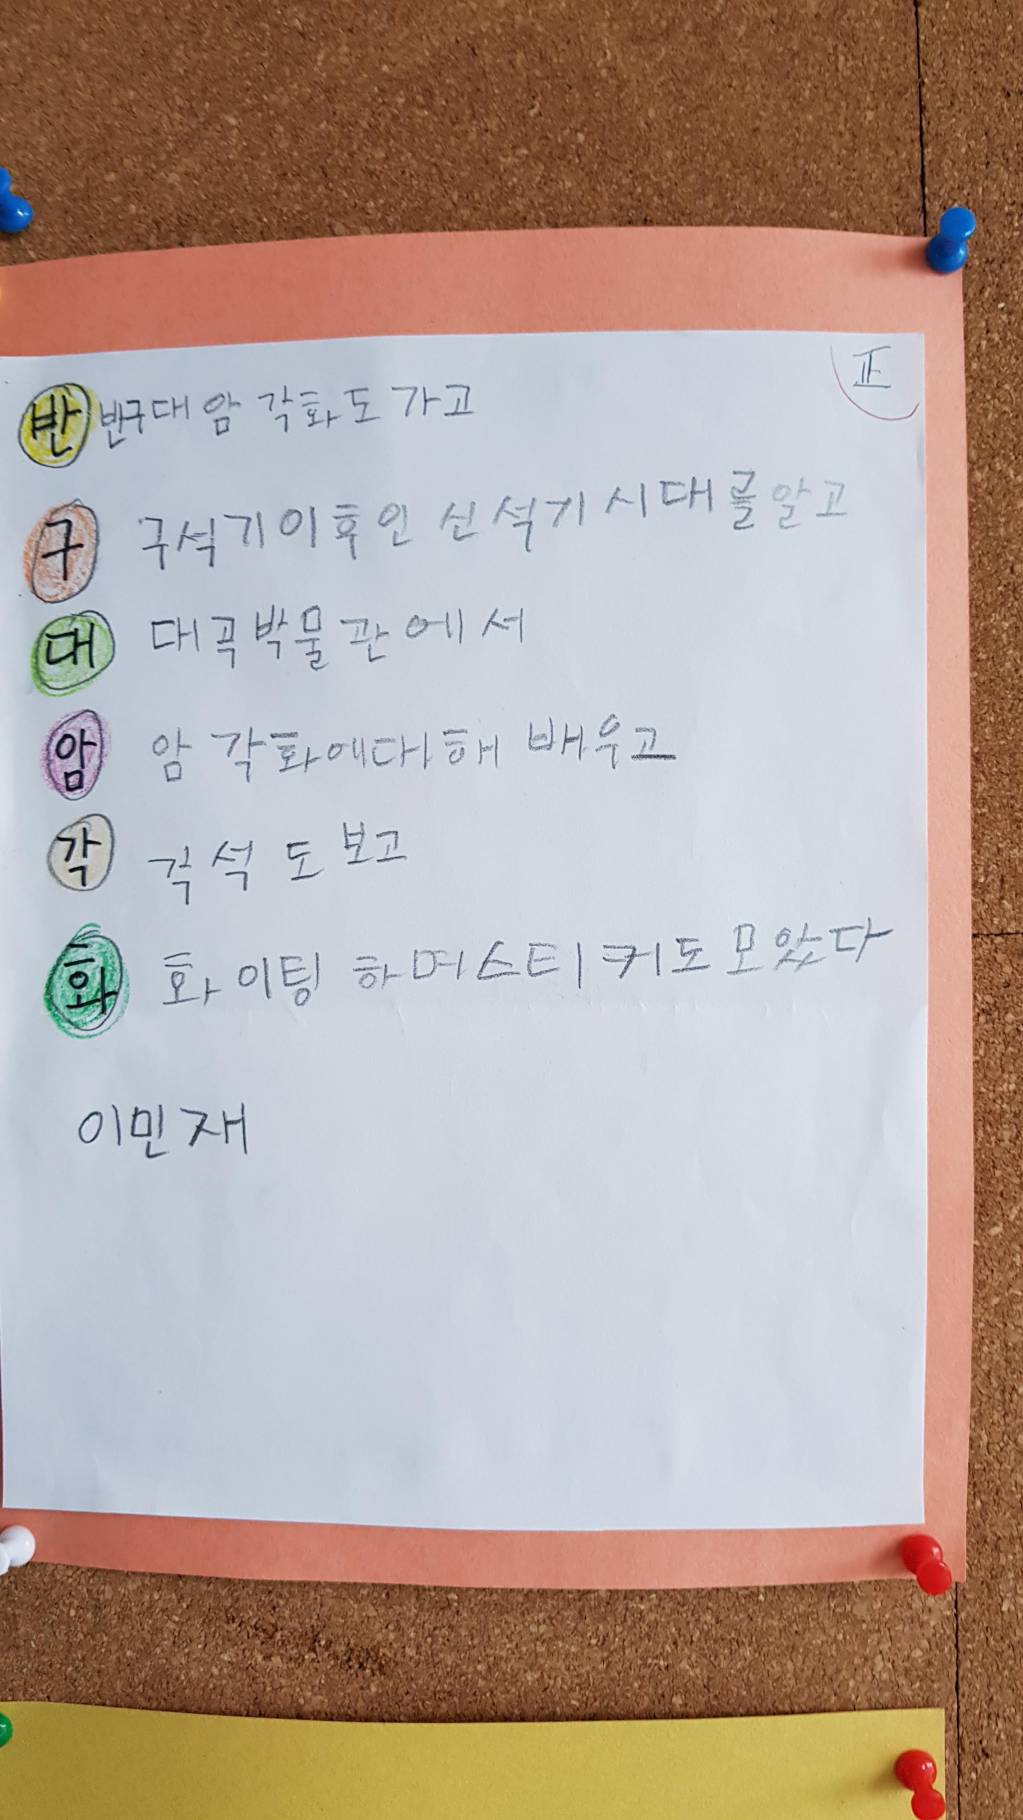 正
반 반구대 암각화도 가고
구 구석기 이후인 신석기 시대를 알고
대 대곡박물관에서
암 암각화에 대해 배우고
각 각석도 보고
화 화이팅 하며 스티커도 모았다
이민재